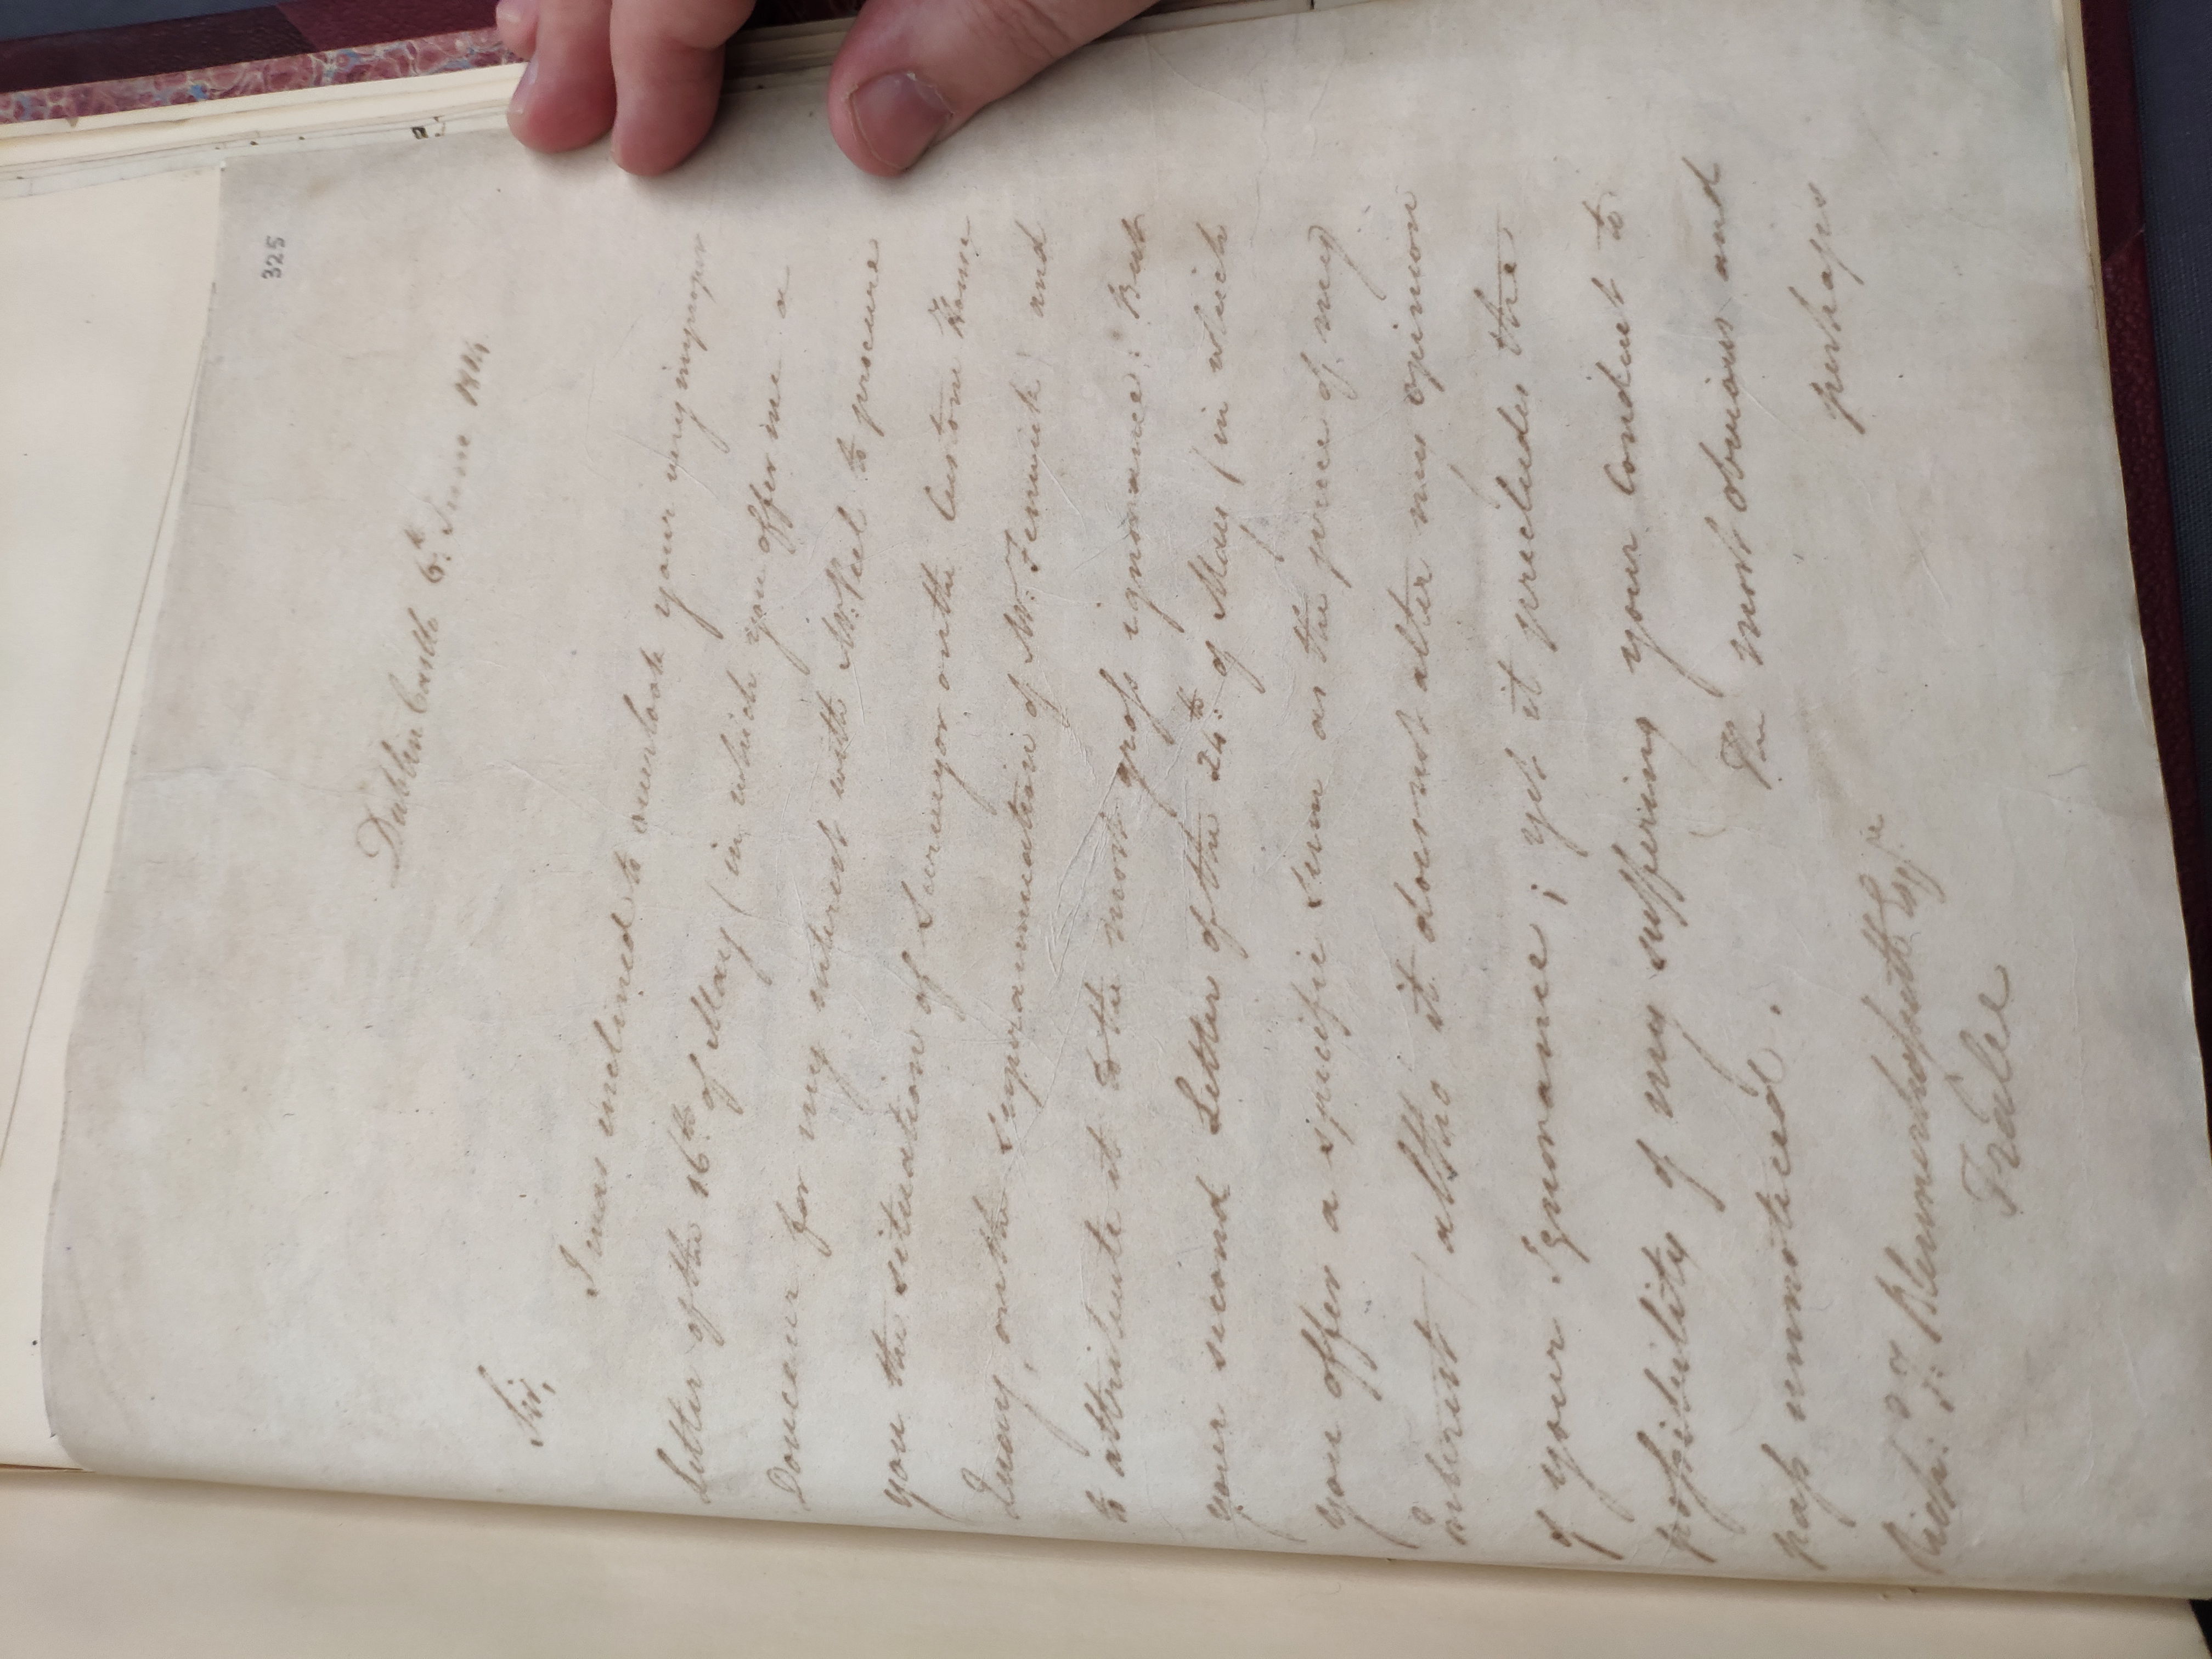 325
Dublin Castle 6th June 1814
Sir,
I was inclined to overlook your very improper
Letter of the 16th of May (in which you offer me a
Douceur for my interest with Mr. Peel to procure
you the situation of Surveyor on the Custom House
Quay, on the superannuation of Mr. Fenwick) and
to attribute it to the most gross ignorance: But
your second Letter of the 24th of May (in which
you offer a specific sum as the price of my
interest) altho it does not alter my opinion
of your Ignorance; yet it precludes the
possibility of my suffering your conduct to
pass unnoticed.
The most obvious and
perhaps
Richd. T: Blennerhassett Esqre
Tralee